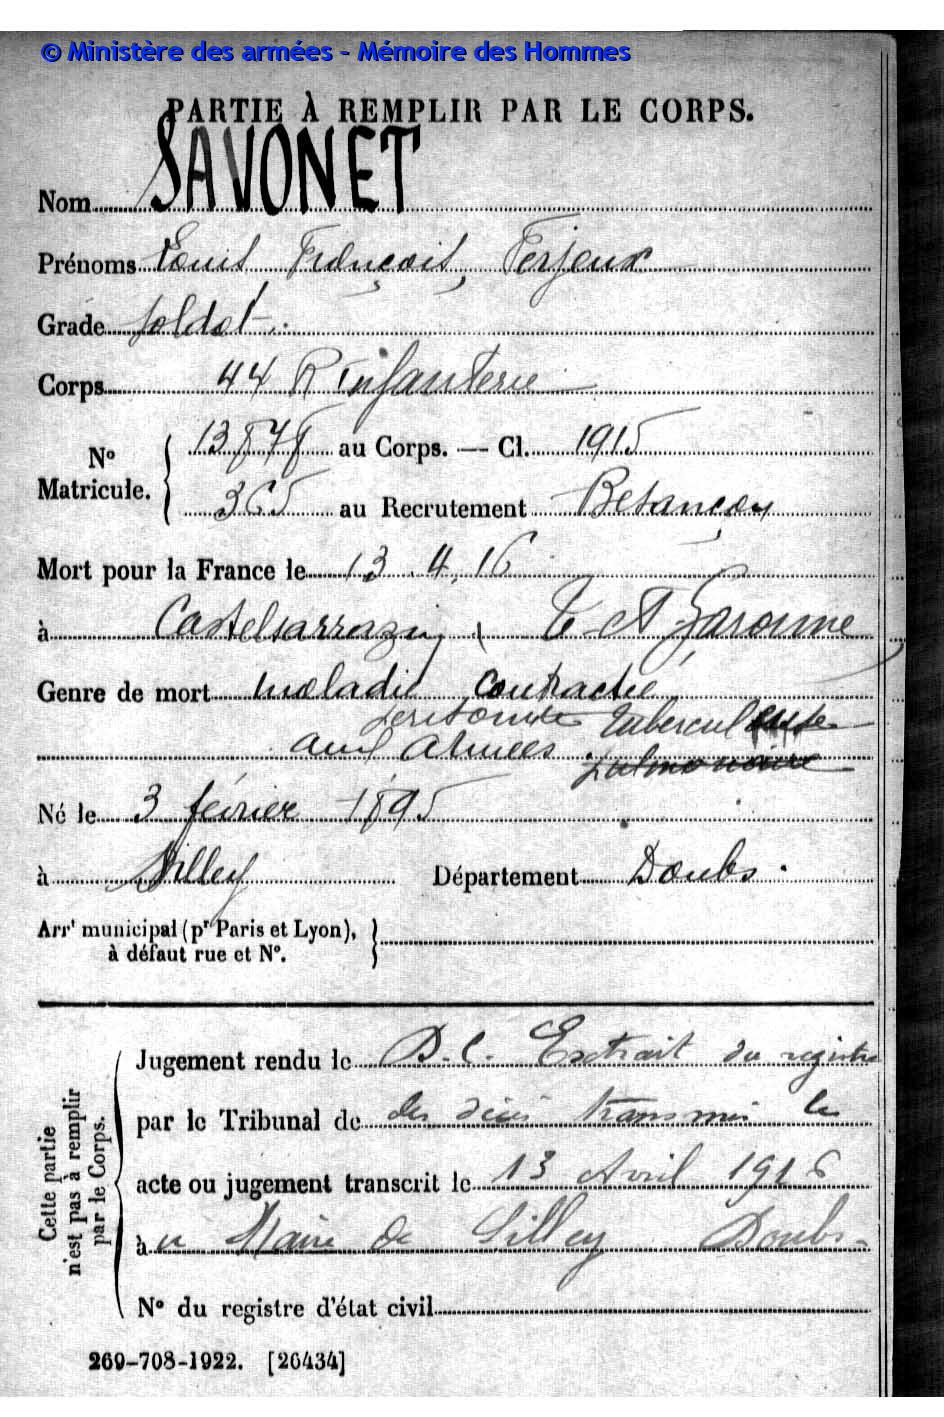 © Ministère des armées - Mémoire des Hommes
PARTIE À REMPLIR PAR LE CORPS.
Nom SAVONET
Prénoms Louis, François, Ferjeux
Grade soldat
Corps 44 R Infanterie
N° Matricule. { 13878 au Corps. — Cl. 1915
365 au Recrutement Besançon
Mort pour la France le 13.4.16
à Castelsarrazin, T et Garonne
Genre de mort maladie contractée
peritonite tuberculeuse
aux Armées pulmonaire
Né le 3 février 1895
à Silley Département Doubs.
Arrt municipal (pr Paris et Lyon),
à défaut rue et N°. }
Cette partie n'est pas à remplir par le Corps.
Jugement rendu le D.C. Extrait du registre
par le Tribunal de des décès transmis le
acte ou jugement transcrit le 13 Avril 1916
à u Maire de Silley Doubs
N° du registre d'état civil
269-708-1922. [26434]